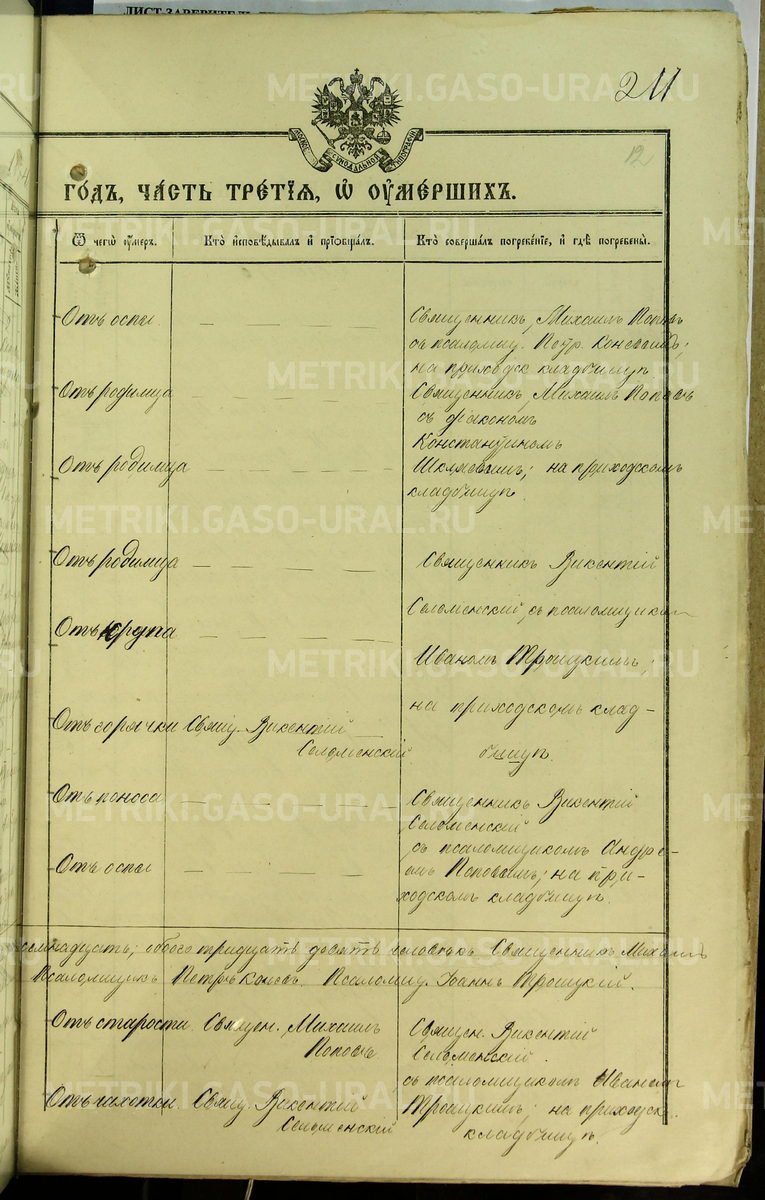 ЛИСТ-ЗАВЕРИТЕЛЬ
METRIKI.GASO-URAL.RU
211
12
ГОДЪ, ЧАСТЬ ТРЕТІЯ, Ѡ ОУМЕРШИХЪ.
Ѿ чегѡ оумеръ.
Кто исповѣдывалъ и пріобщалъ.
Кто совершалъ погребеніе, и гдѣ погребены.
Отъ оспы
Священникъ Михаилъ Поповъ
съ псаломщ. Петр. Коневымъ;
на приходск кладбищѣ
Отъ родимца
Священникъ Михаилъ Поповъ
съ діакономъ
Константиномъ
Отъ родимца
на приходскомъ
кладбищѣ.
Отъ родимца
Священникъ Викентій
Селоменскій, съ псаломщиком
Отъ крупа
Иваномъ Троицкимъ;
на приходскомъ клад-
бищѣ.
Отъ горячки
Свящ. Викентій
Селоменскій
Отъ поноса
Священникъ Викентій
Селоменскій
съ псаломщикомъ Андре-
емъ Поповымъ; на при-
ходскомъ кладбищѣ.
Отъ оспы
обоего тридцать девять человѣкъ Священникъ Михаилъ
Псаломщикъ Петръ Коневъ. Псаломщ. Іоаннъ Троицкій.
Отъ старости.
Священ. Михаилъ
Поповъ
Священ. Викентій
Селоменскій.
съ псаломщикомъ Иваномъ
Троицкимъ; на приходск.
кладбищѣ.
Отъ чахотки.
Свящ. Викентій
Селоменскій